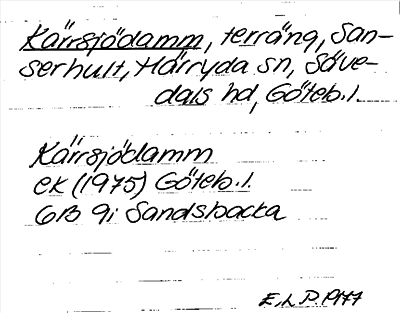 Kärrsjödamm, terräng, San-
serhult, Härryda sn, Säve-
dals hd, Göteb. l.
Kärrsjödamm
ek (1975) Göteb. l.
6B 9i Sandsbacka
E. L. P. 1977